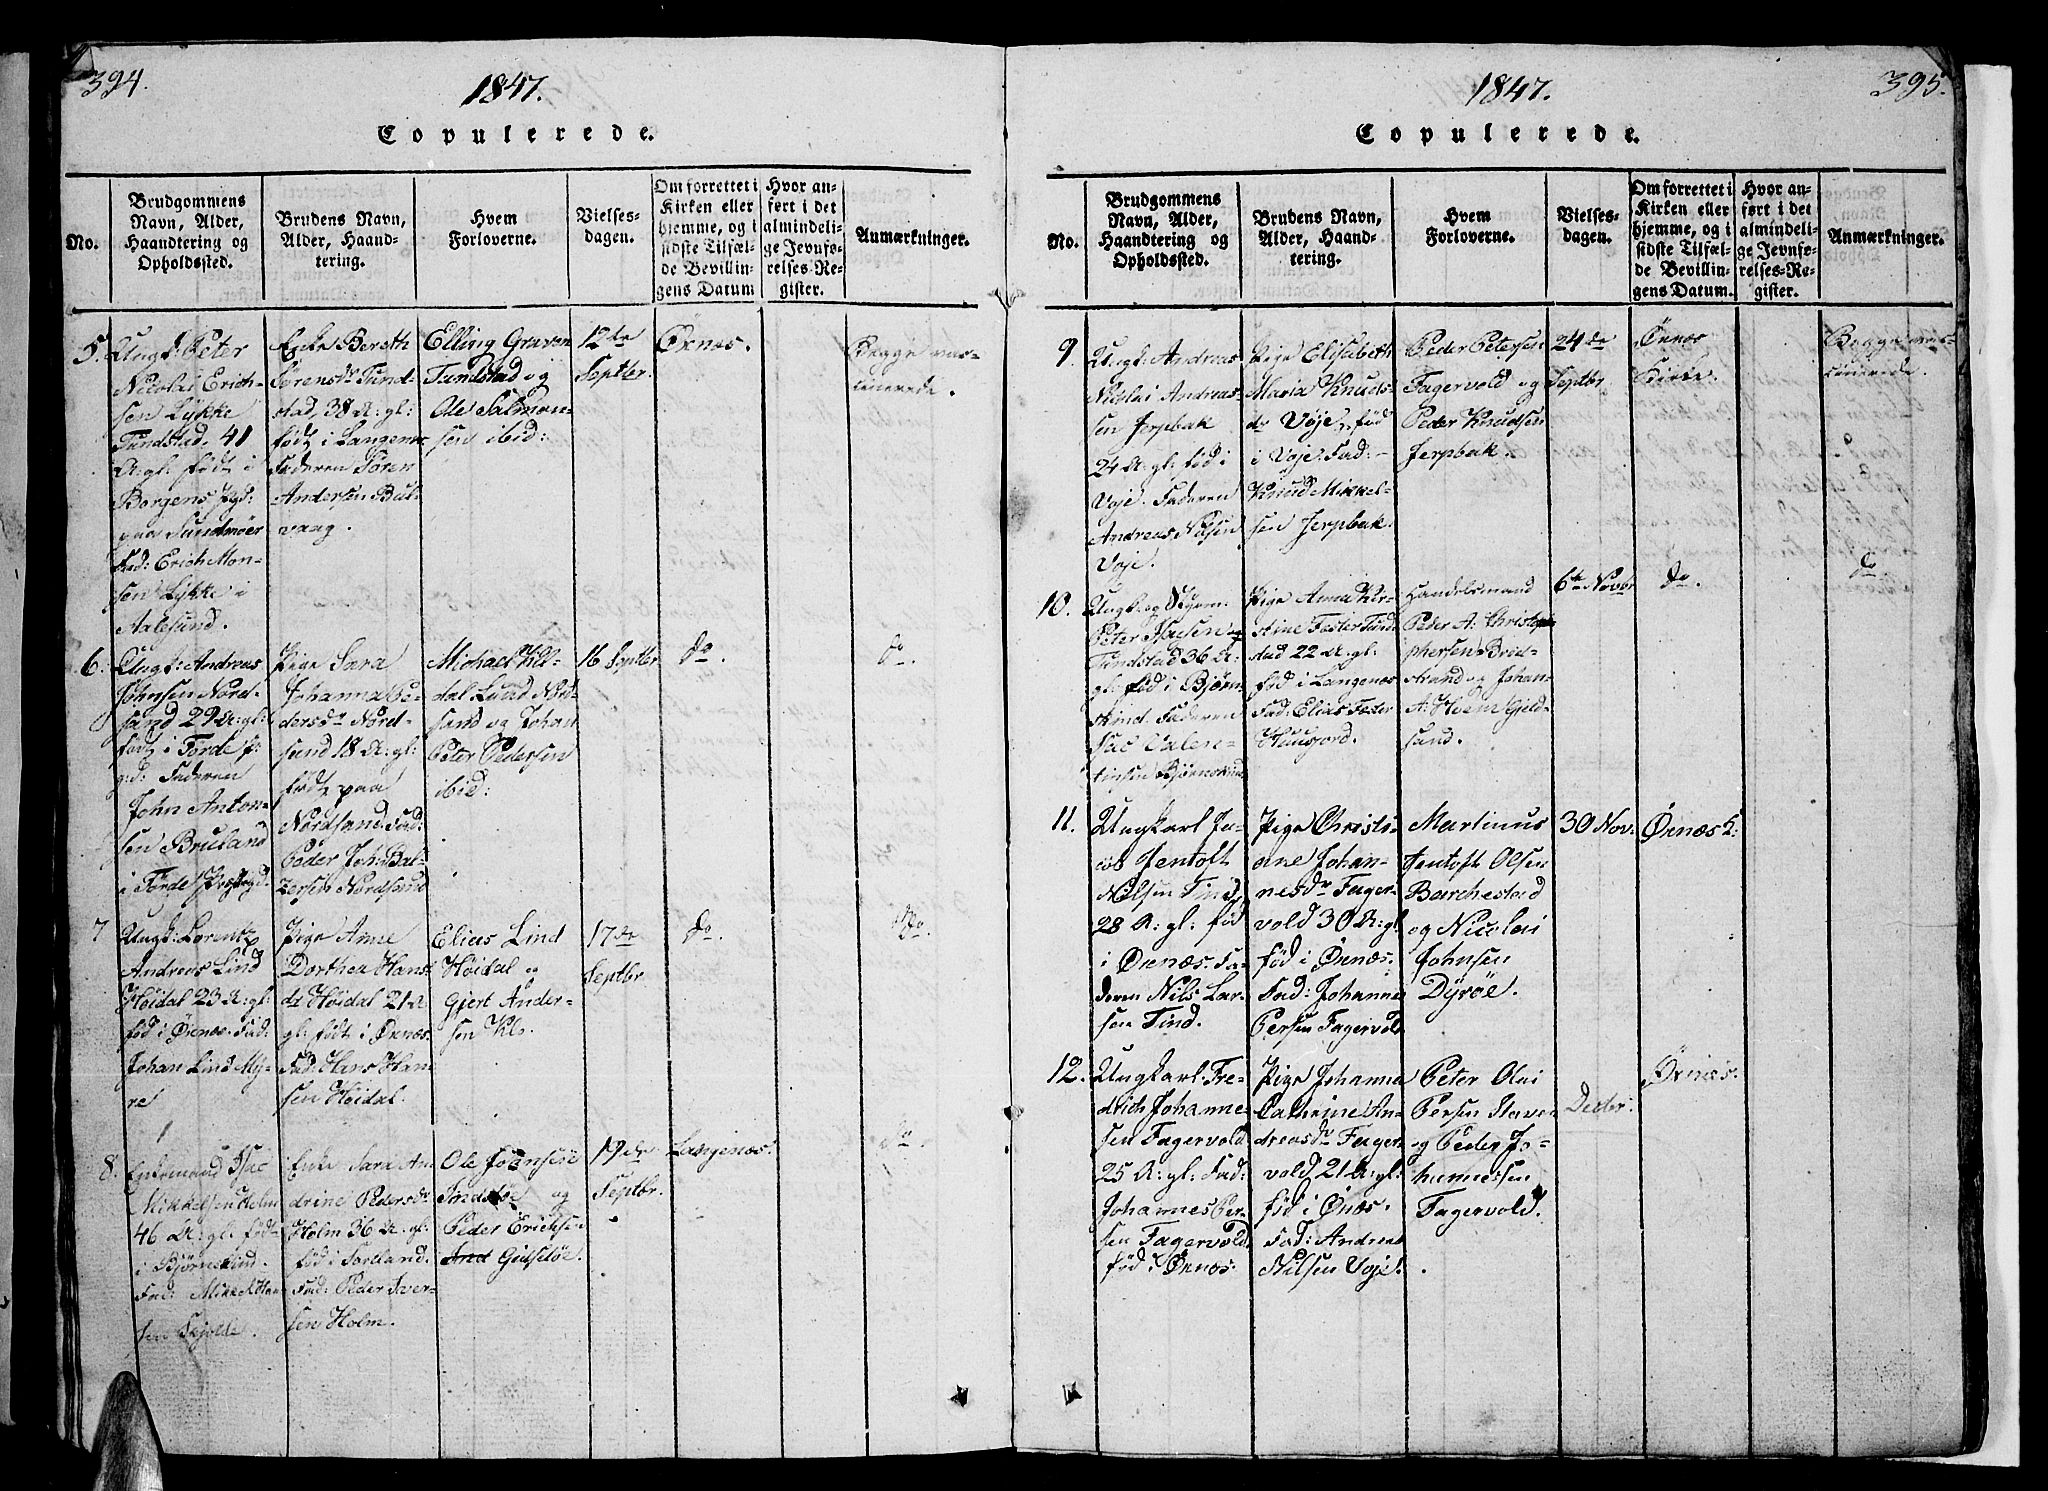 394.
1847.
Copulerede.
No.
Brudgommens
Navn, Alder,
Haandtering og
Opholdssted.
Brudens Navn,
Alder, Haand-
tering.
Hvem
Forloverne.
Vielses-
dagen.
Om forrettet i
Kirken eller
hjemme, og i
sidste Tilfæl-
de Bevillin-
gens Datum
Hvor an-
ført i det
almindeli-
ge Jevnfø-
relses-Re-
gister.
Anmærkninger.
5.
Ungk: Peter
Nicolai Erich-
sen Lykke
Tundstad. 41
A: gl: født i
Borgens Pgd:
paa Sundmöer
Fad: Erich Mon-
sen Lykke i
Aalesund.
Enke Bereth
Sörensdr Tund-
stad, 38 A: gl:
født i Langenæs
Faderen Sören
Andersen Bul-
vaag.
Elling Graven
Tundstad og
Ole Salmon-
sen ibid:
12te
Septbr.
Öxnæs.
Begge vac-
cinerede.
6.
Ungk: Andreas
Johnsen Nord-
sand 29 A: gl:
født i Förde P:
gd: Faderen
John Anton-
sen Bruland
i Förde Præstegd.
Pige Sara
Johanna Pe-
dersdr Nord-
sund 18 A: gl:
født paa
Nordsand. Fad:
Peder Joh: Bal-
zersen Nordsand
Michael Kil-
dal Lund Nord-
sand og Johan
Peter Pedersen
ibid:
16 Septbr
do.
do.
7
Ungk: Lorentz
Andreas Lind
Höidal 23 A: gl:
föd i Öxnæs. Fad:
Johan Lind My-
re
Pige Anne
Dorthea Hans-
dr Höidal 21 A:
gl: født i Öxnæs.
Fad: Hans Han-
sen Höidal.
Elias Lind
Höidal og
Gjert Ander-
sen Klo.
17de
Septbr.
do.
do.
8.
Enkemand Isac
Mikkelsen Holm
46 A: gl: föd
i Björnskind.
Fad: Mikkel Han-
sen Skjolde.
Enke Sara An-
drine Pedersdr
Holm 36 A: gl:
föd i Sortland.
Fad: Peder Iver-
sen Holm.
Ole Johnsen
og
Peder Erichsen
Gidselöe.
19de
Septbr.
Langenæs.
do
1847.
395.
Copulerede.
No.
Brudgommens
Navn, Alder,
Haandtering og
Opholdssted.
Brudens Navn,
Alder, Haand-
tering.
Hvem
Forloverne.
Vielses-
dagen.
Om forrettet i
Kirken eller
hjemme, og i
sidste Tilfæl-
de Bevillin-
gens Datum.
Hvor an-
ført i det
almindeli-
ge Jevnfø-
relses-Re-
gister.
Anmærkninger.
9
Ungk: Andreas
Nicolai Andreas-
sen Jerpbak
24 A: gl: föd i
Voje. Faderen
Andreas Nilsen
Voje.
Pige Elisabeth
Maria Knuds-
dr Vöje, föd
i Vöje. Fad:
Knud Mikkel-
sen Jerpbak.
Peder Petersen
Fagervold og
Peder Knudsen
Jerpbak.
24de
Septbr
Öxnæs
Kirke.
Begge vac-
cinerede.
10.
Ungk: og Styrm.
Peter Isacsen
Tundstad 36 A:
gl: föd i Björn-
skind. Faderen
Isac Valen-
tinsen Björnskind
Pige Anna Kir-
stine Fester Tund-
stad 22 A: gl:
föd i Langenæs
Fad: Elias Fester
Haugjord.
Handelsmand
Peder A: Christo-
phersen Bred-
strand og Johan
A: Hveen Gjeld-
sand.
6te Novbr
do.
do
11.
Ungkarl Ja-
cob Jentoft
Nilsen Tind,
28 A: gl: föd
i Öxnæs. Fa-
deren Nils Lar-
sen Tind.
Pige Christi-
ane Johan-
nesdr Fager-
vold 30 A: gl
föd i Öxnæs.
Fad: Johannes
Persen Fagervold
Martinus
Jentoft Olsen
Barchestad
og Nicolai
Johnsen
Dyröe.
30 Nov.
Öxnæs K:
12.
Ungkarl: Fre-
drich Johanne-
sen Fagervold
25 A: gl: Fad:
Johannes Per-
sen Fagervold
föd i Öxnæs.
Pige Johanna
Cathrine An-
dreasdr Fager-
vold 21 A: gl:
föd i Öxnæs.
Fad: Andreas
Nilsen Voje.
Peter Olai
Persen Stave
og Peder Jo-
hannessen
Fagervold.
Decbr:
Öxnæs.